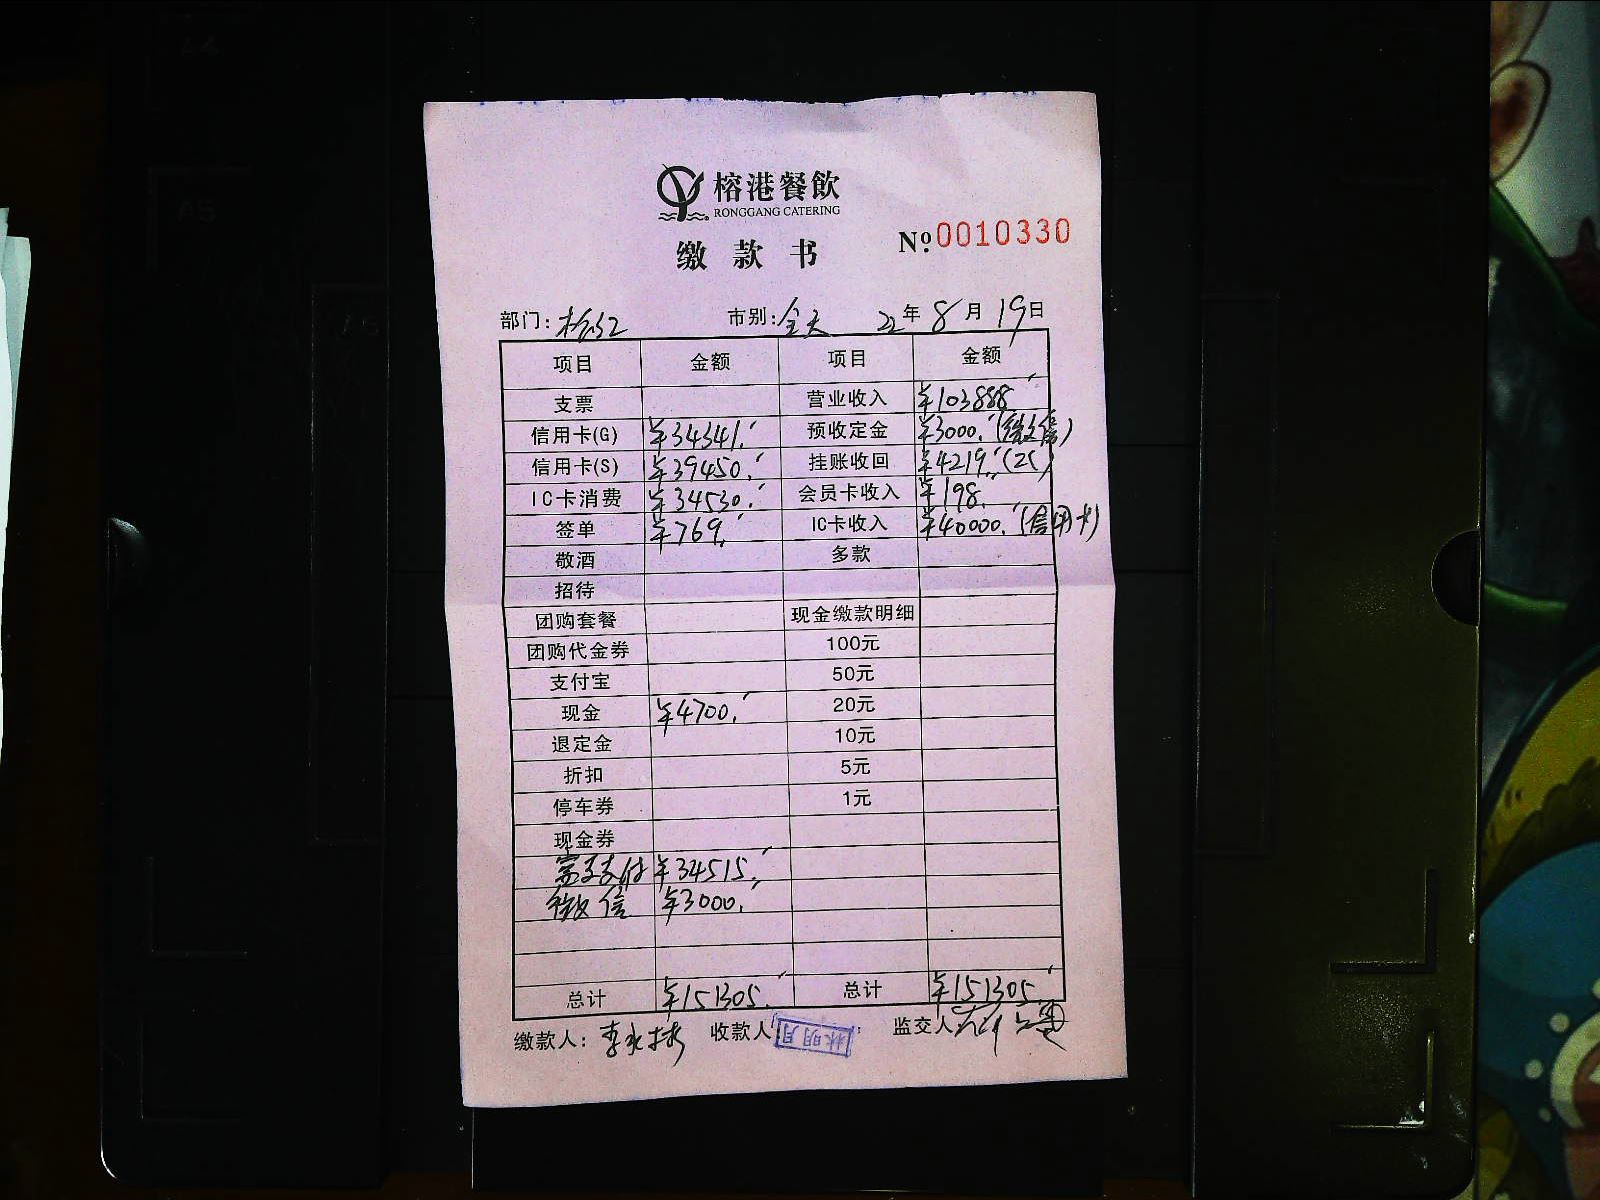 榕港餐飲
RONGGANG CATERING
缴款书
№ 0010330
部门: 市别: 全天 22年 8月 19日
项目 金额 项目 金额
支票 营业收入 ¥103888
信用卡(G) ¥34341. 预收定金 ¥3000. (微信)
信用卡(S) ¥39450. 挂账收回 ¥4219. (2C)
IC卡消费 ¥34530. 会员卡收入 ¥198.
签单 ¥769. IC卡收入 ¥40000. (信用卡)
敬酒 多款
招待
团购套餐 现金缴款明细
团购代金券 100元
支付宝 50元
现金 ¥4700. 20元
退定金 10元
折扣 5元
停车券 1元
现金券
支付 ¥34515.
微信 ¥3000.
总计 ¥151305. 总计 ¥151305.
缴款人: 李 收款人: 林明月 监交人
A5